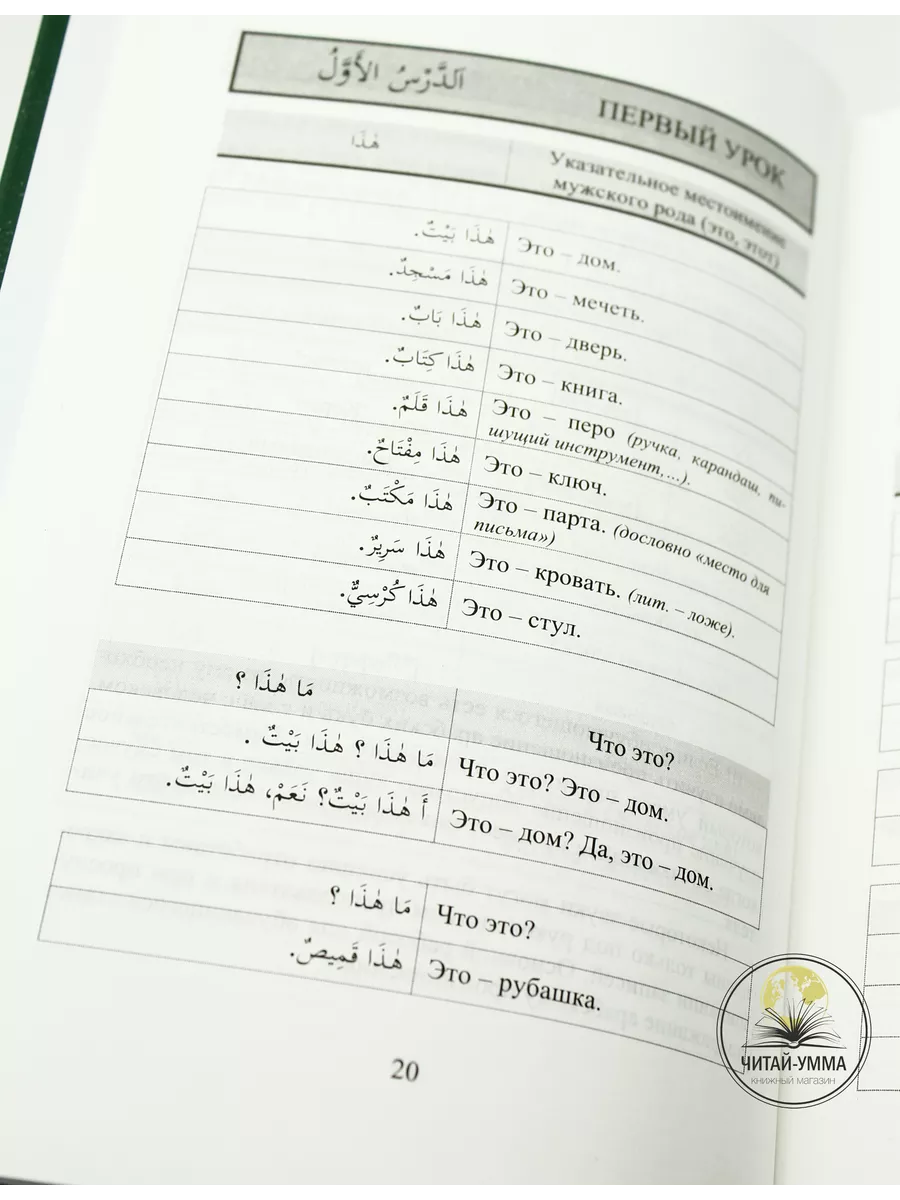 اَلدَّرْسُ الأَوَّلُ
ПЕРВЫЙ УРОК
هٰذَا
Указательное местоимение
мужского рода (это, этот)
هٰذَا بَيْتٌ.
Это – дом.
هٰذَا مَسْجِدٌ.
Это – мечеть.
هٰذَا بَابٌ.
Это – дверь.
هٰذَا كِتَابٌ.
Это – книга.
هٰذَا قَلَمٌ.
Это – перо (ручка, карандаш, пи-
шущий инструмент,...).
هٰذَا مِفْتَاحٌ.
Это – ключ.
هٰذَا مَكْتَبٌ.
Это – парта. (дословно «место для
письма»)
هٰذَا سَرِيرٌ.
Это – кровать. (лит. – ложе).
هٰذَا كُرْسِيٌّ.
Это – стул.
مَا هٰذَا ؟
Что это?
مَا هٰذَا ؟ هٰذَا بَيْتٌ .
Что это? Это – дом.
أَ هٰذَا بَيْتٌ؟ نَعَمْ، هٰذَا بَيْتٌ.
Это – дом? Да, это – дом.
مَا هٰذَا ؟
Что это?
هٰذَا قَمِيصٌ.
Это – рубашка.
20
ЧИТАЙ-УММА
КНИЖНЫЙ МАГАЗИН